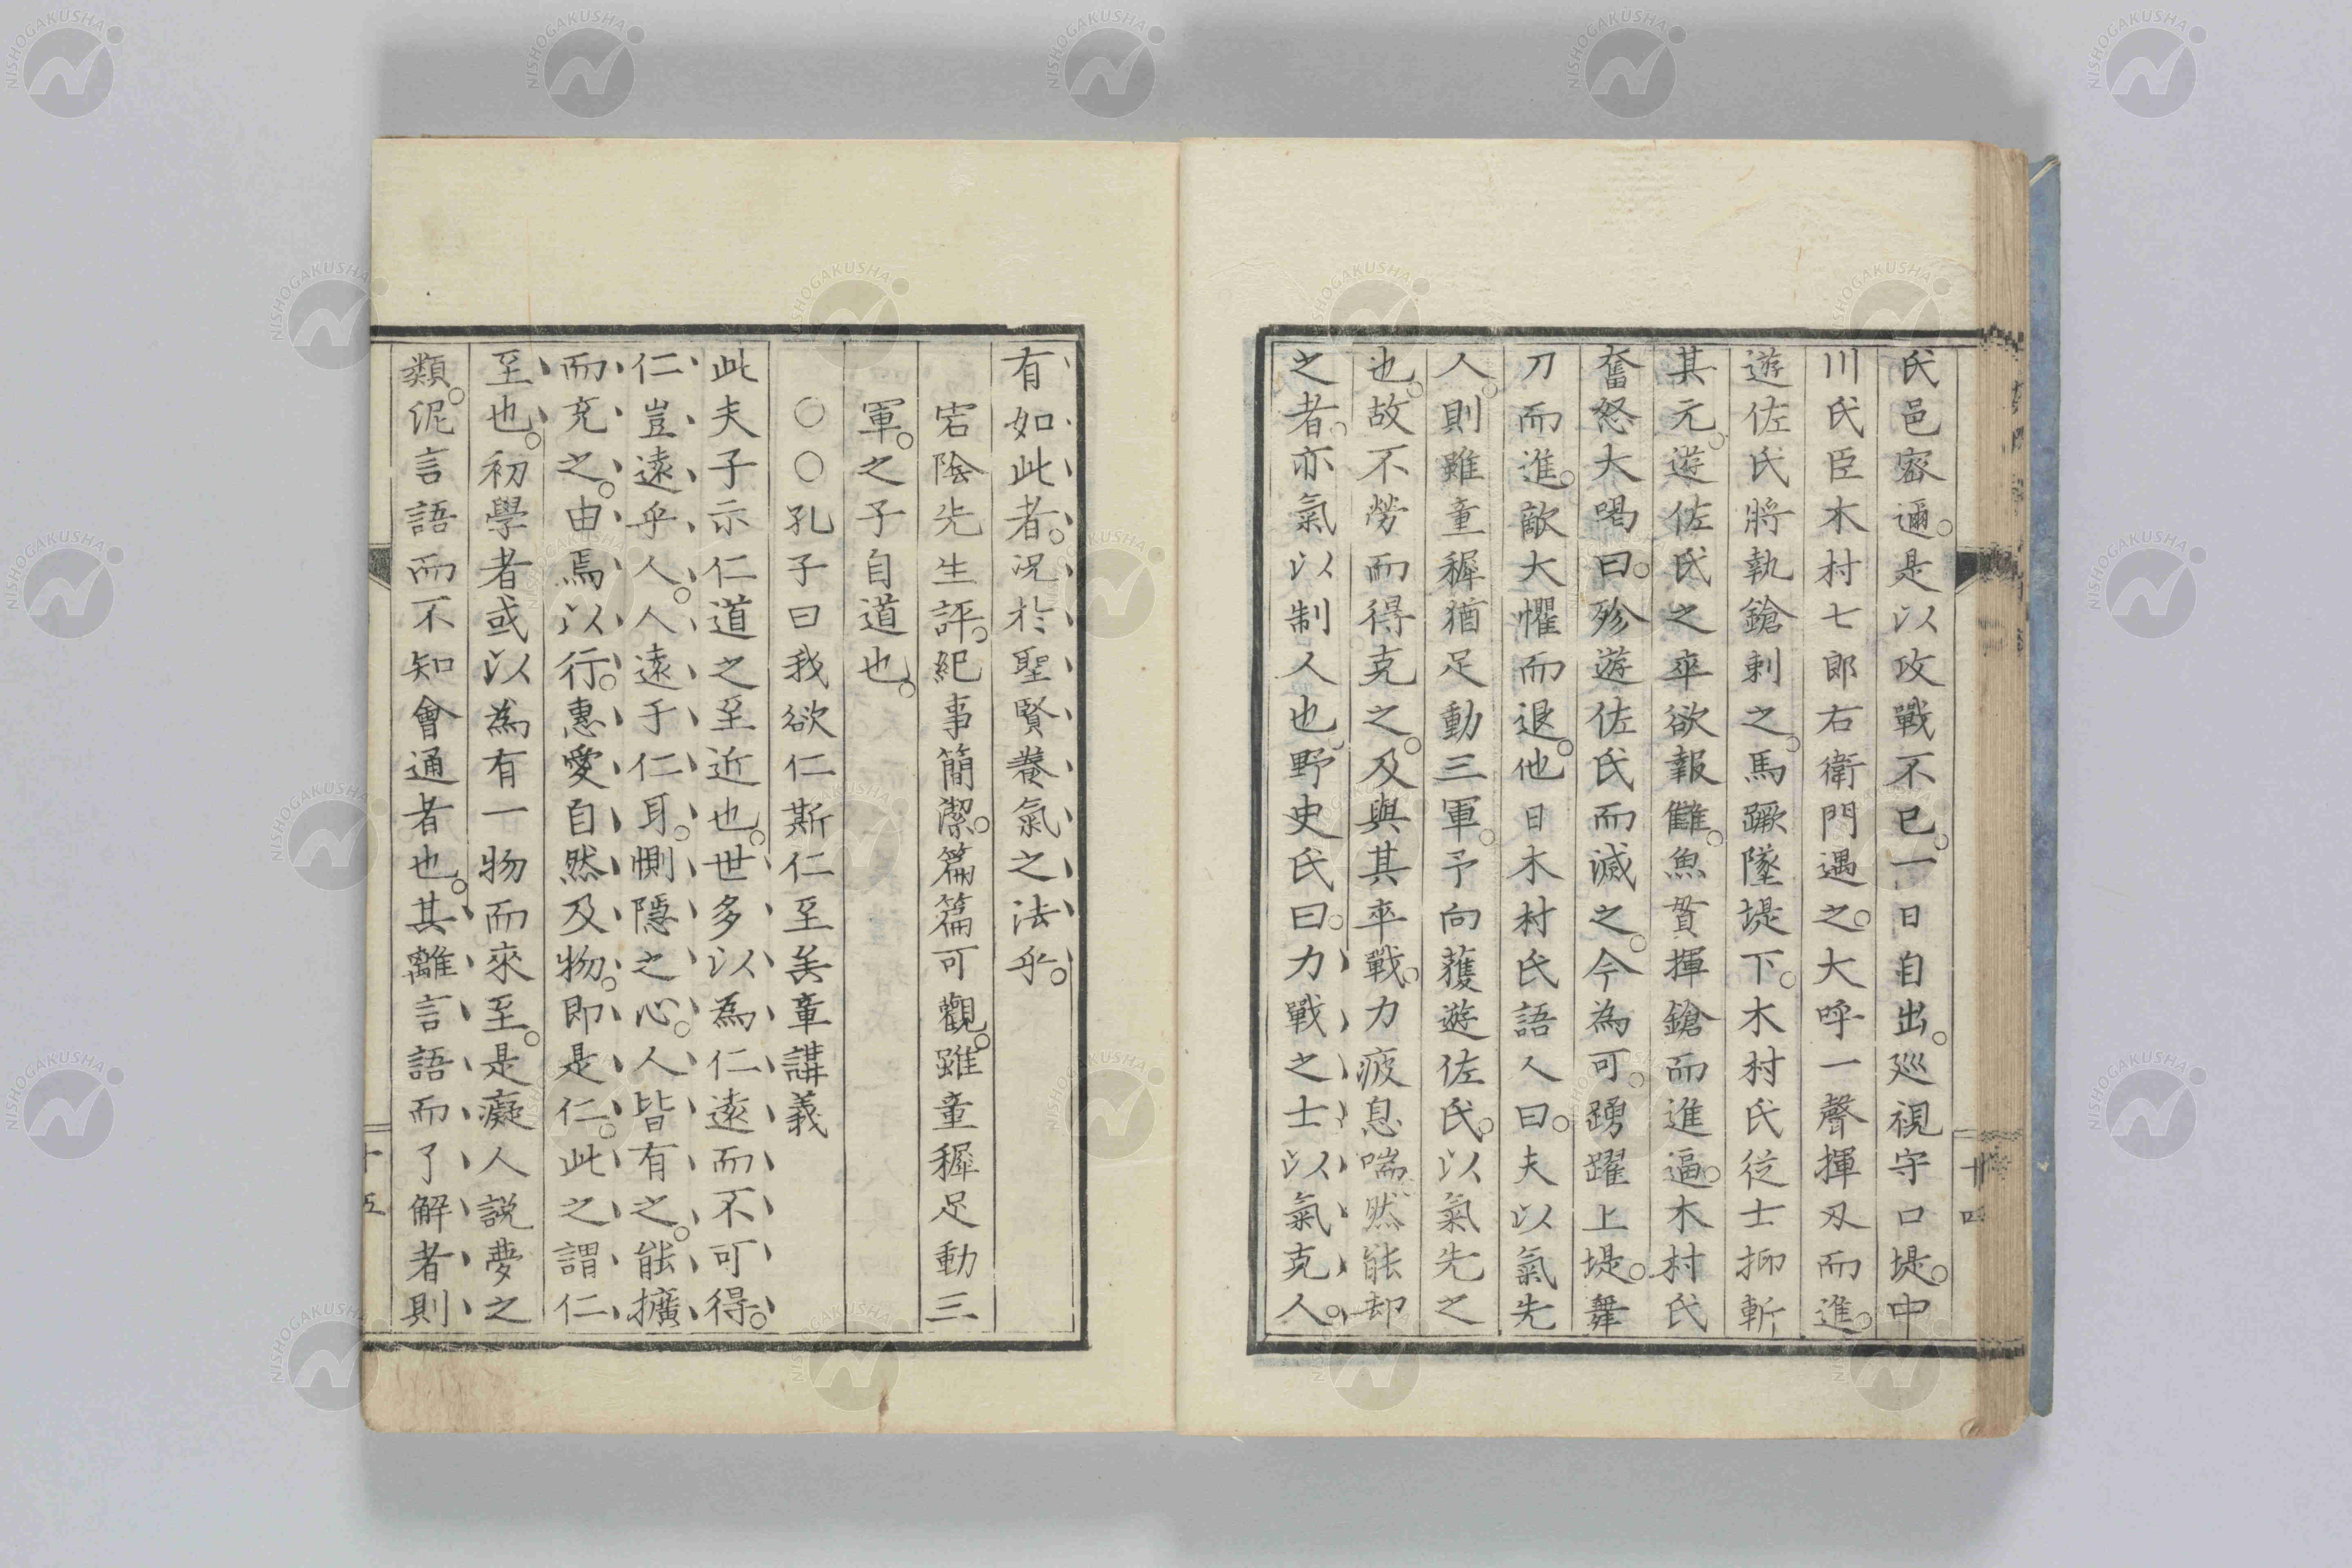 氏邑密邇。是以攻戰不已。一日自出。巡視守口堤。中
川氏臣木村七郎右衛門遇之。大呼一聲揮刃而進。
遊佐氏將執鎗刺之。馬蹶墜堤下。木村氏從士抑斬
其元。遊佐氏之卒欲報讎。魚貫揮鎗而進逼。木村氏
奮怒大喝曰。殄遊佐氏而滅之。今為可。踴躍上堤。舞
刀而進。敵大懼而退。他日木村氏語人曰。夫以氣先
人。則雖童穉猶足動三軍。予向獲遊佐氏。以氣先之
也。故不勞而得克之。及與其卒戰。力疲息喘。然能却
之者。亦氣以制人也。野史氏曰。力戰之士。以氣克人。
十四
有如此者。況於聖賢養氣之法乎。
宕陰先生評。紀事簡潔。篇篇可觀。雖童穉足動三
軍。之子自道也。
○○孔子曰我欲仁斯仁至矣章講義
此夫子示仁道之至近也。世多以為仁遠而不可得。
仁豈遠乎人。人遠于仁耳。惻隱之心。人皆有之。能擴
而充之。由焉以行。惠愛自然及物。即是仁。此之謂仁
至也。初學者或以為有一物而來至。是癡人說夢之
類。泥言語而不知會通者也。其離言語而了解者則
十五
NISHOGAKUSHA